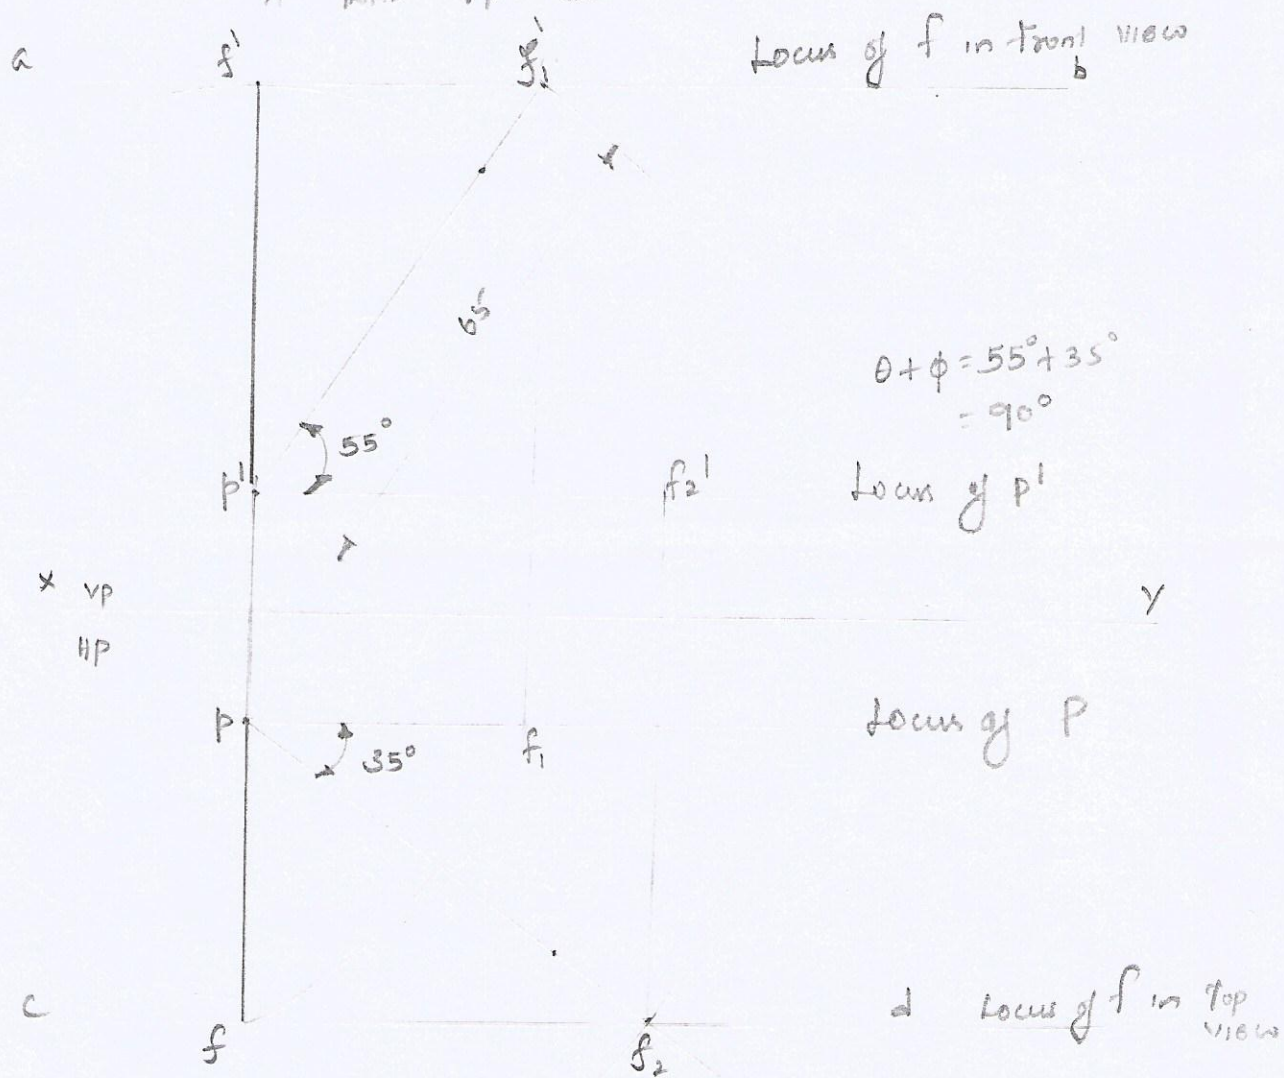 a f' f₁' Locus of f in front view
b
65
θ+φ=55°+35°
= 90°
55°
p' f₂' Locus of p'
X VP Y
HP
p Locus of P
35° f₁
c d Locus of f in Top
view
f f₂